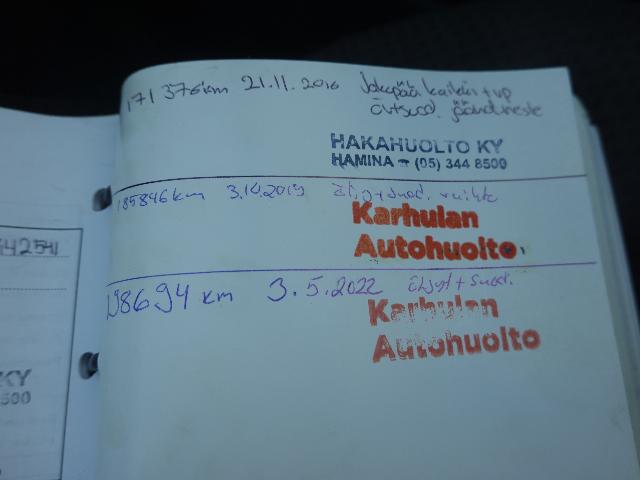 171 376km 21.11.2016 Jakopää kaikki + vp
öv+suod. jäähd.neste
HAKAHUOLTO KY
HAMINA ☎ (05) 344 8500
185846km 3.10.2019 suod. vaihto
Karhulan
Autohuolto
198694 km 3.5.2022 Öljyt + suod.
Karhulan
Autohuolto
42541
KY
500